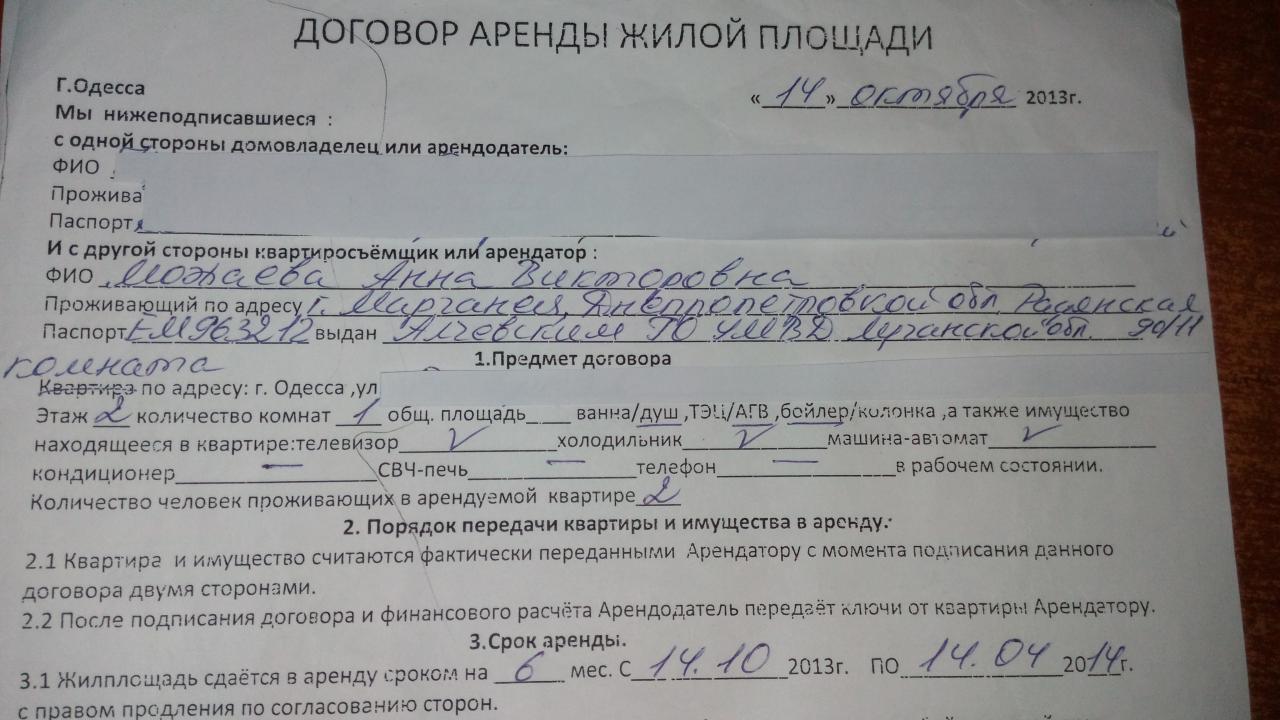 ДОГОВОР АРЕНДЫ ЖИЛОЙ ПЛОЩАДИ
Г.Одесса
«14» октября 2013г.
Мы нижеподписавшиеся :
с одной стороны домовладелец или арендодатель:
ФИО
Прожива
Паспорт
И с другой стороны квартиросъёмщик или арендатор :
ФИО Можаева Анна Викторовна
Проживающий по адресу г. Марганец, Днепропетровской обл.
Паспорт ЕМ963212 выдан Алчевским ГО УМВД Луганской обл.
комната
1.Предмет договора
Квартира по адресу: г. Одесса ,ул
Этаж 2 количество комнат 1 общ. площадь____ ванна/душ ,ТЭЦ/АГВ ,бойлер/колонка ,а также имущество
находящееся в квартире:телевизор √ холодильник √ машина-автомат √
кондиционер — СВЧ-печь — телефон — в рабочем состоянии.
Количество человек проживающих в арендуемой квартире 2
2. Порядок передачи квартиры и имущества в аренду.
2.1 Квартира и имущество считаются фактически переданными Арендатору с момента подписания данного
договора двумя сторонами.
2.2 После подписания договора и финансового расчёта Арендодатель передаёт ключи от квартиры Арендатору.
3.Срок аренды.
3.1 Жилплощадь сдаётся в аренду сроком на 6 мес. С 14.10 2013г. ПО 14.04 2014г.
с правом продления по согласованию сторон.